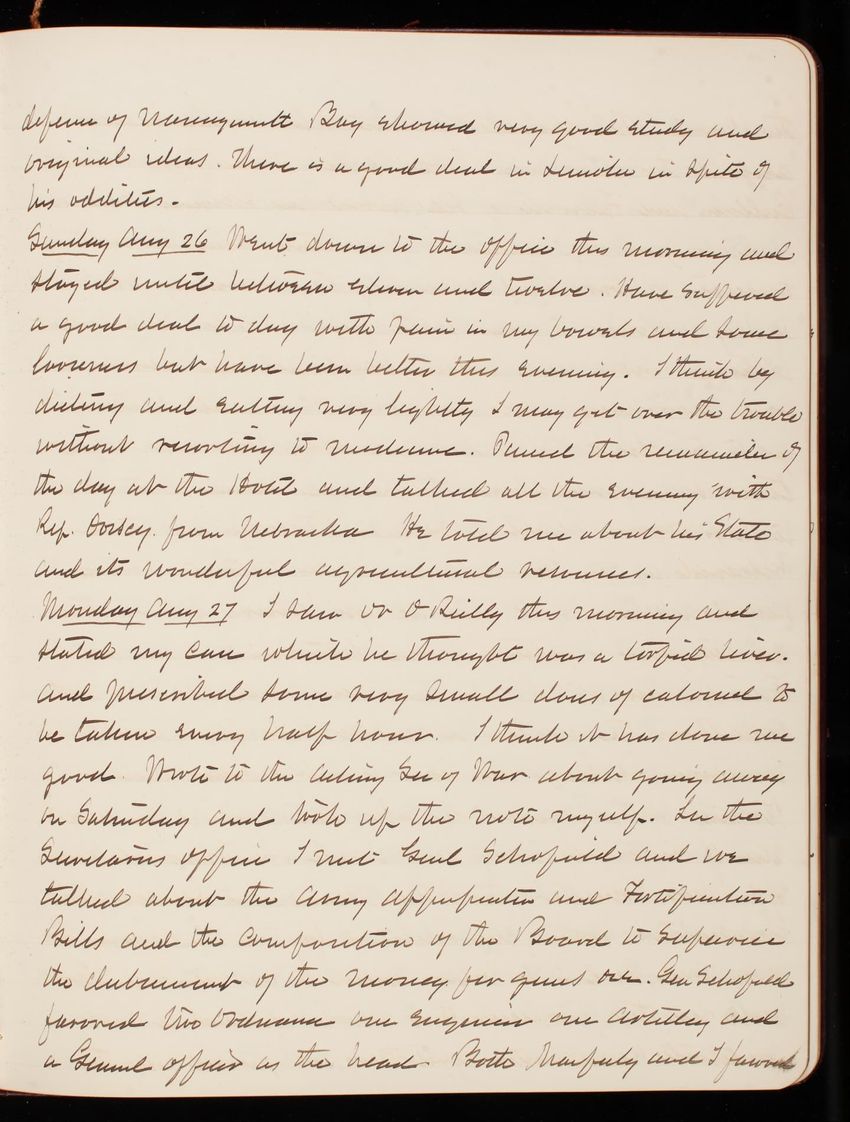 defense of Narragansett Bay showed very good study and
original ideas. There is a good deal in Lincoln in spite of
his oddities.
Sunday Aug 26 Went down to the office this morning and
stayed until between eleven and twelve. Have suffered
a good deal to day with pain in my bowels and some
looseness but have been better this evening. I think by
dieting and eating very lightly I may get over the trouble
without resorting to medicine. Passed the remainder of
the day at the Hotel and talked all the evening with
Rep. Dorsey from Nebraska He told me about his State
and its wonderful agricultural resources.
Monday Aug 27 I saw Dr O'Reilly this morning and
stated my case which he thought was a torpid liver.
and prescribed some very small doses of calomel to
be taken every half hour. I think it has done me
good. Wrote to the Acting Sec of War about going away
on Saturday and took up the note myself. In the
Secretarys office I met Genl Schofield and we
talked about the Army Appropriation and Fortification
Bills and the composition of the Board to supervise
the disbursement of the money for guns &c. Gen Schofield
favored two Ordnance one Engineer one Artillery and
a General officer as the head Both and I favored